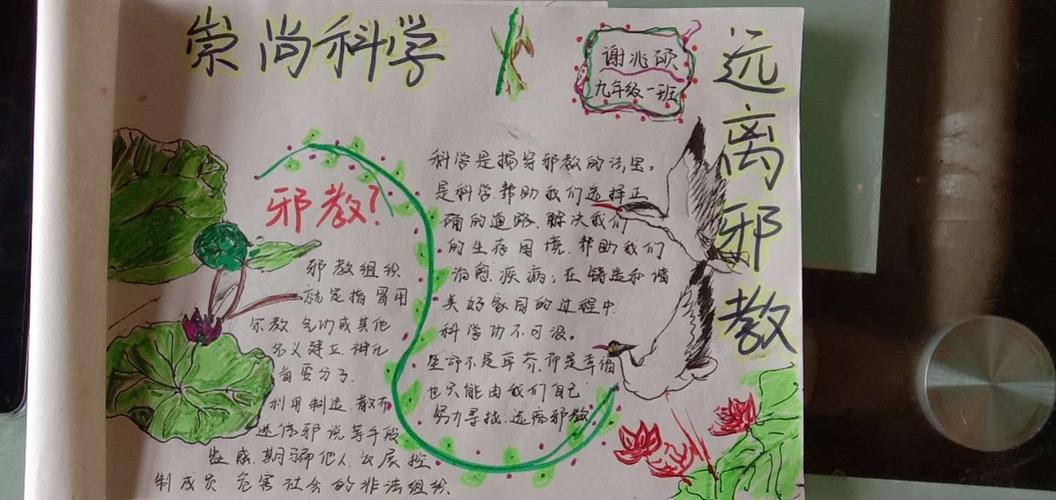 崇尚科学
谢兆硕
九年级一班
远离邪教
邪教?
邪教组织
就是指冒用
宗教 气功或其他
名义建立.神化
首要分子.
利用制造.散布
迷信邪说等手段
蛊惑.期骗他人.发展控
制成员.危害社会的非法组织.
科学是揭穿邪教的
是科学帮助我们选择正
确的道路.解决我们
的生存困境.帮助我们
治愈疾病;在铸造和谐
美好家园的过程中
科学功不可没.
生命不是草芥.
也只能由我们自己
努力寻找.远离邪教